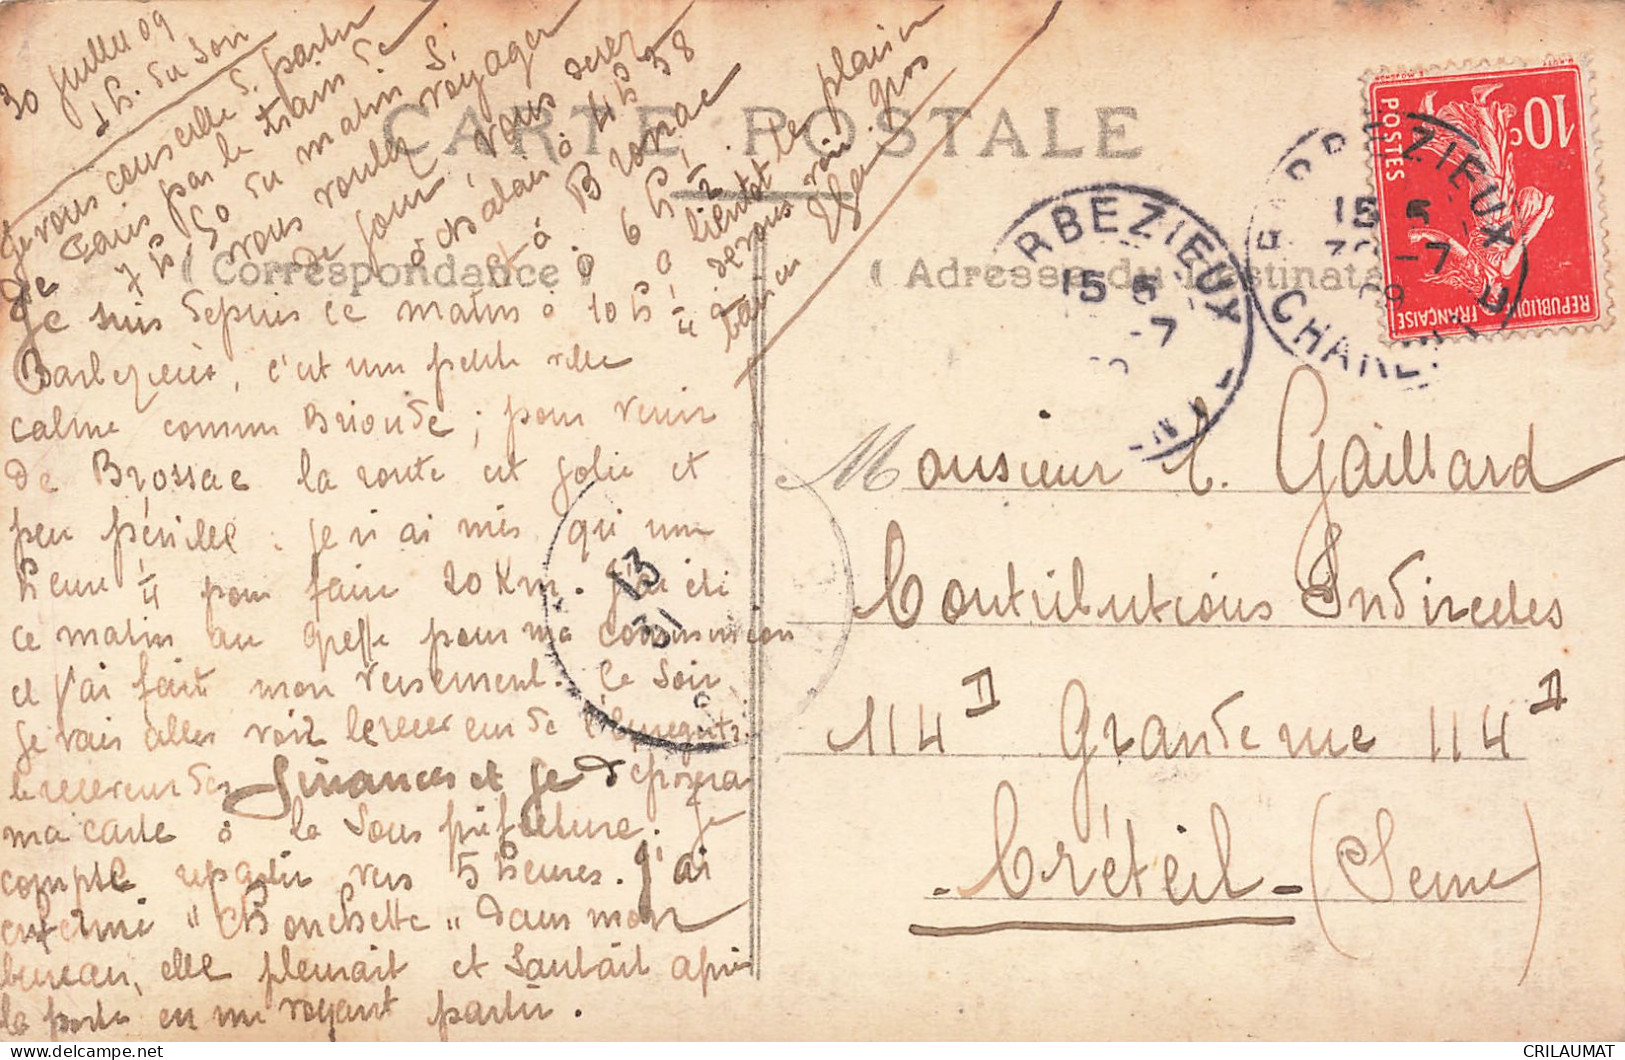 30 Juillet 09
1 h. du soir
Je vous conseille S. partir
de Paris par le train de
7 h, 50 du matin S.
vous voulez voyager
de jour, vous serez
à Chalais à 4 h 38
et à Brossac
à 6 h 1/2.
à bientôt le plaisir
de vous voir. gros
baisers
CARTE POSTALE
( Correspondance )
( Adresse du Destinata
Je suis depuis ce matin à 10 h 1/4 à
Barbezieux, c'est une petite ville
calme comme Brioude ; pour venir
de Brossac la route est jolie et
peu pénible. Je n'ai mis qu'une
heure 1/4 pour faire 20 Km. J'ai été
ce matin au greffe pour ma commission
et j'ai fait mon versement. Ce soir
Je vais aller voir le receveur de l'Enregistr.
le receveur des finances et je déposerai
ma carte à la Sous préfecture. Je
compte repartir vers 5 heures. J'ai
enfermé "Chonchette" dans mon
bureau, elle pleurait et sautait après
la porte en me voyant partir.
Monsieur E. Gaillard
Contributions Indirectes
114 II Grande rue 114 II
- Créteil - (Seine)
BARBEZIEUX
15 5
30 -7
09
CHARENTE
RBEZIEUX
15 5
-7
13
31
10c
POSTES
REPUBLIQUE FRANÇAISE
CRILAUMAT